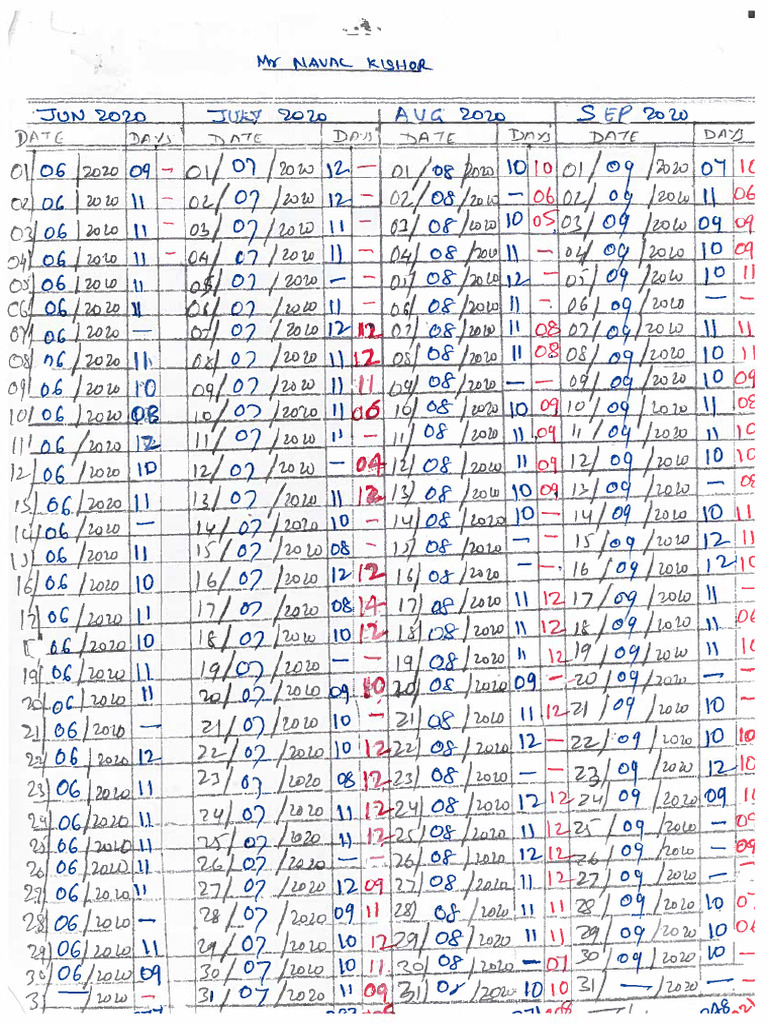 Mr NAVAL KISHOR
JUN 2020 JULY 2020 AUG 2020 SEP 2020
DATE DAYS DATE DAYS DATE DAYS DATE DAYS
01/06/2020 09 - 01/07/2020 12 - 01/08/2020 10 10 01/09/2020 07
02/06/2020 11 - 02/07/2020 12 - 02/08/2020 - 06 02/09/2020 11 06
03/06/2020 11 - 03/07/2020 11 - 03/08/2020 10 05 03/09/2020 09 09
04/06/2020 11 - 04/07/2020 11 - 04/08/2020 11 - 04/09/2020 10 09
05/06/2020 11 05/07/2020 - - 05/08/2020 12 - 05/09/2020 10 11
06/06/2020 11 06/07/2020 11 - 06/08/2020 11 - 06/09/2020 - -
07/06/2020 - 07/07/2020 12 12 07/08/2020 11 08 07/09/2020 11 11
08/06/2020 11 08/07/2020 11 12 08/08/2020 11 08 08/09/2020 10 11
09/06/2020 10 09/07/2020 11 11 09/08/2020 - - 09/09/2020 10 09
10/06/2020 08 10/07/2020 11 06 10/08/2020 10 09 10/09/2020 11 08
11/06/2020 12 11/07/2020 11 - 11/08/2020 11 09 11/09/2020 11 10
12/06/2020 10 12/07/2020 - 04 12/08/2020 11 09 12/09/2020 10 10
13/06/2020 11 13/07/2020 11 12 13/08/2020 10 09 13/09/2020 - 08
14/06/2020 - 14/07/2020 10 - 14/08/2020 10 - 14/09/2020 10 11
15/06/2020 11 15/07/2020 08 - 15/08/2020 - - 15/09/2020 12 11
16/06/2020 10 16/07/2020 12 12 16/08/2020 - - 16/09/2020 12 10
17/06/2020 11 17/07/2020 08 14 17/08/2020 11 12 17/09/2020 11 -
06/2020 10 18/07/2020 10 12 18/08/2020 11 12 18/09/2020 11
19/06/2020 11 19/07/2020 - - 19/08/2020 11 12 19/09/2020 11
20/06/2020 11 20/07/2020 09 10 20/08/2020 09 - 20/09/2020 - -
21/06/2020 - 21/07/2020 10 - 21/08/2020 11 12 21/09/2020 10 -
22/06/2020 12 22/07/2020 10 12 22/08/2020 12 - 22/09/2020 10 10
23/06/2020 11 23/07/2020 08 12 23/08/2020 - - 23/09/2020 12 10
24/06/2020 11 24/07/2020 11 12 24/08/2020 12 12 24/09/2020 09
25/06/2020 11 25/07/2020 11 12 25/08/2020 11 12 25/09/2020 -
26/06/2020 11 26/07/2020 - - 26/08/2020 12 12 26/09/2020 - 09
27/06/2020 11 27/07/2020 12 09 27/08/2020 11 12 27/09/2020 - -
28/06/2020 - 28/07/2020 09 11 28/08/2020 11 11 28/09/2020 10
29/06/2020 11 29/07/2020 10 12 29/08/2020 11 11 29/09/2020 10
30/06/2020 09 30/07/2020 10 11 30/08/2020 - 07 30/09/2020 10 -
31/-/2020 - 31/07/2020 11 09 31/08/2020 10 10 31/-/2020 - -